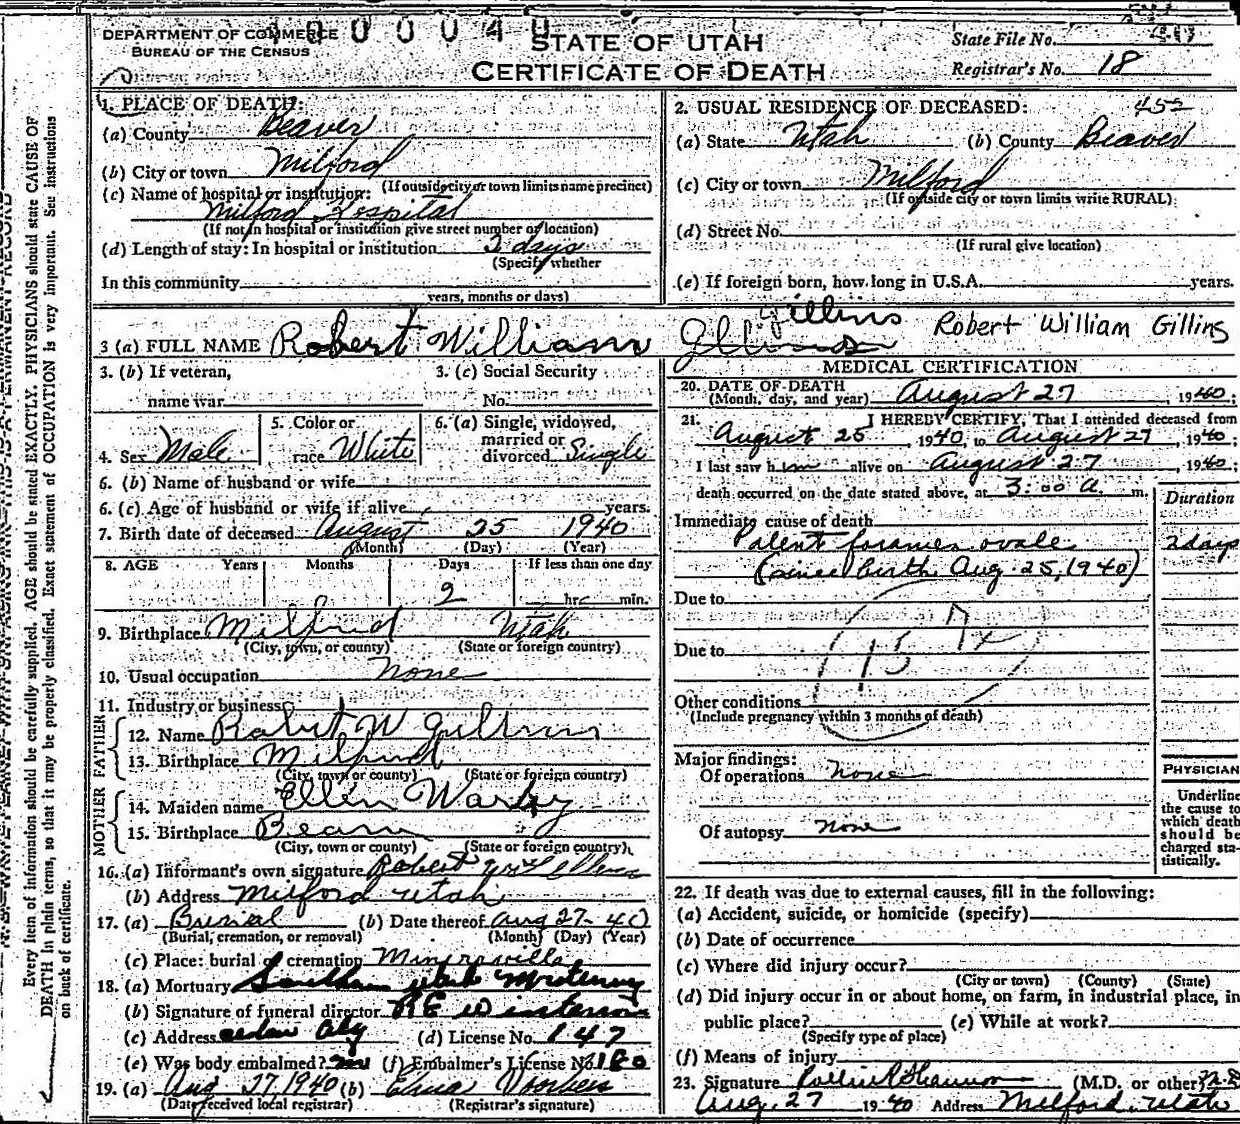 DEPARTMENT OF COMMERCE
BUREAU OF THE CENSUS
STATE OF UTAH
CERTIFICATE OF DEATH
State File No.
Registrar's No. 18
1. PLACE OF DEATH:
(a) County Beaver
(b) City or town Milford
(If outside city or town limits name precinct)
(c) Name of hospital or institution:
Milford Hospital
(If not in hospital or institution give street number or location)
(d) Length of stay: In hospital or institution 3 days
(Specify whether
In this community
years, months or days)
2. USUAL RESIDENCE OF DECEASED: 452
(a) State Utah (b) County Beaver
(c) City or town Milford
(If outside city or town limits write RURAL)
(d) Street No.
(If rural give location)
(e) If foreign born, how long in U.S.A. years.
3 (a) FULL NAME Robert William Gillins Robert William Gillins
3. (b) If veteran,
name war
3. (c) Social Security
No.
4. Sex Male
5. Color or
race White
6. (a) Single, widowed,
married or
divorced Single
6. (b) Name of husband or wife
6. (c) Age of husband or wife if alive years.
7. Birth date of deceased August 25 1940
(Month) (Day) (Year)
8. AGE Years Months Days If less than one day
2 hr. min.
9. Birthplace Milford Utah
(City, town, or county) (State or foreign country)
10. Usual occupation none
11. Industry or business
FATHER
12. Name Robert W Gillins
13. Birthplace Milford
(City, town or county) (State or foreign country)
MOTHER
14. Maiden name Ellen Warby
15. Birthplace Beaver
(City, town or county) (State or foreign country)
16. (a) Informant's own signature Robert
(b) Address Milford Utah
17. (a) Burial (b) Date thereof Aug 27-40
(Burial, cremation, or removal) (Month) (Day) (Year)
(c) Place: burial or cremation Minersville
18. (a) Mortuary Southern Utah Mortuary
(b) Signature of funeral director
(c) Address Cedar City (d) License No. 147
(e) Was body embalmed? (f) Embalmer's License No. 180
19. (a) Aug 27, 1940 (b) Edna
(Date received local registrar) (Registrar's signature)
MEDICAL CERTIFICATION
20. DATE OF DEATH
(Month, day, and year) August 27, 1940;
21. I HEREBY CERTIFY, That I attended deceased from
August 25, 1940, to August 27, 1940;
I last saw him alive on August 27, 1940;
death occurred on the date stated above, at 3:00 a. m.
Duration
Immediate cause of death
Patent foramen ovale 2 days
(since birth Aug. 25, 1940)
Due to
Due to
Other conditions
(Include pregnancy within 3 months of death)
Major findings:
Of operations none
Of autopsy none
PHYSICIAN
Underline
the cause to
which death
should be
charged sta-
tistically.
22. If death was due to external causes, fill in the following:
(a) Accident, suicide, or homicide (specify)
(b) Date of occurrence
(c) Where did injury occur?
(City or town) (County) (State)
(d) Did injury occur in or about home, on farm, in industrial place, in
public place? (e) While at work?
(Specify type of place)
(f) Means of injury
23. Signature (M.D. or other) M.D.
Aug. 27 1940 Address Milford, Utah
Every item of information should be carefully supplied. AGE should be stated EXACTLY. PHYSICIANS should state CAUSE OF
DEATH in plain terms, so that it may be properly classified. Exact statement of OCCUPATION is very important. See instructions
on back of certificate.